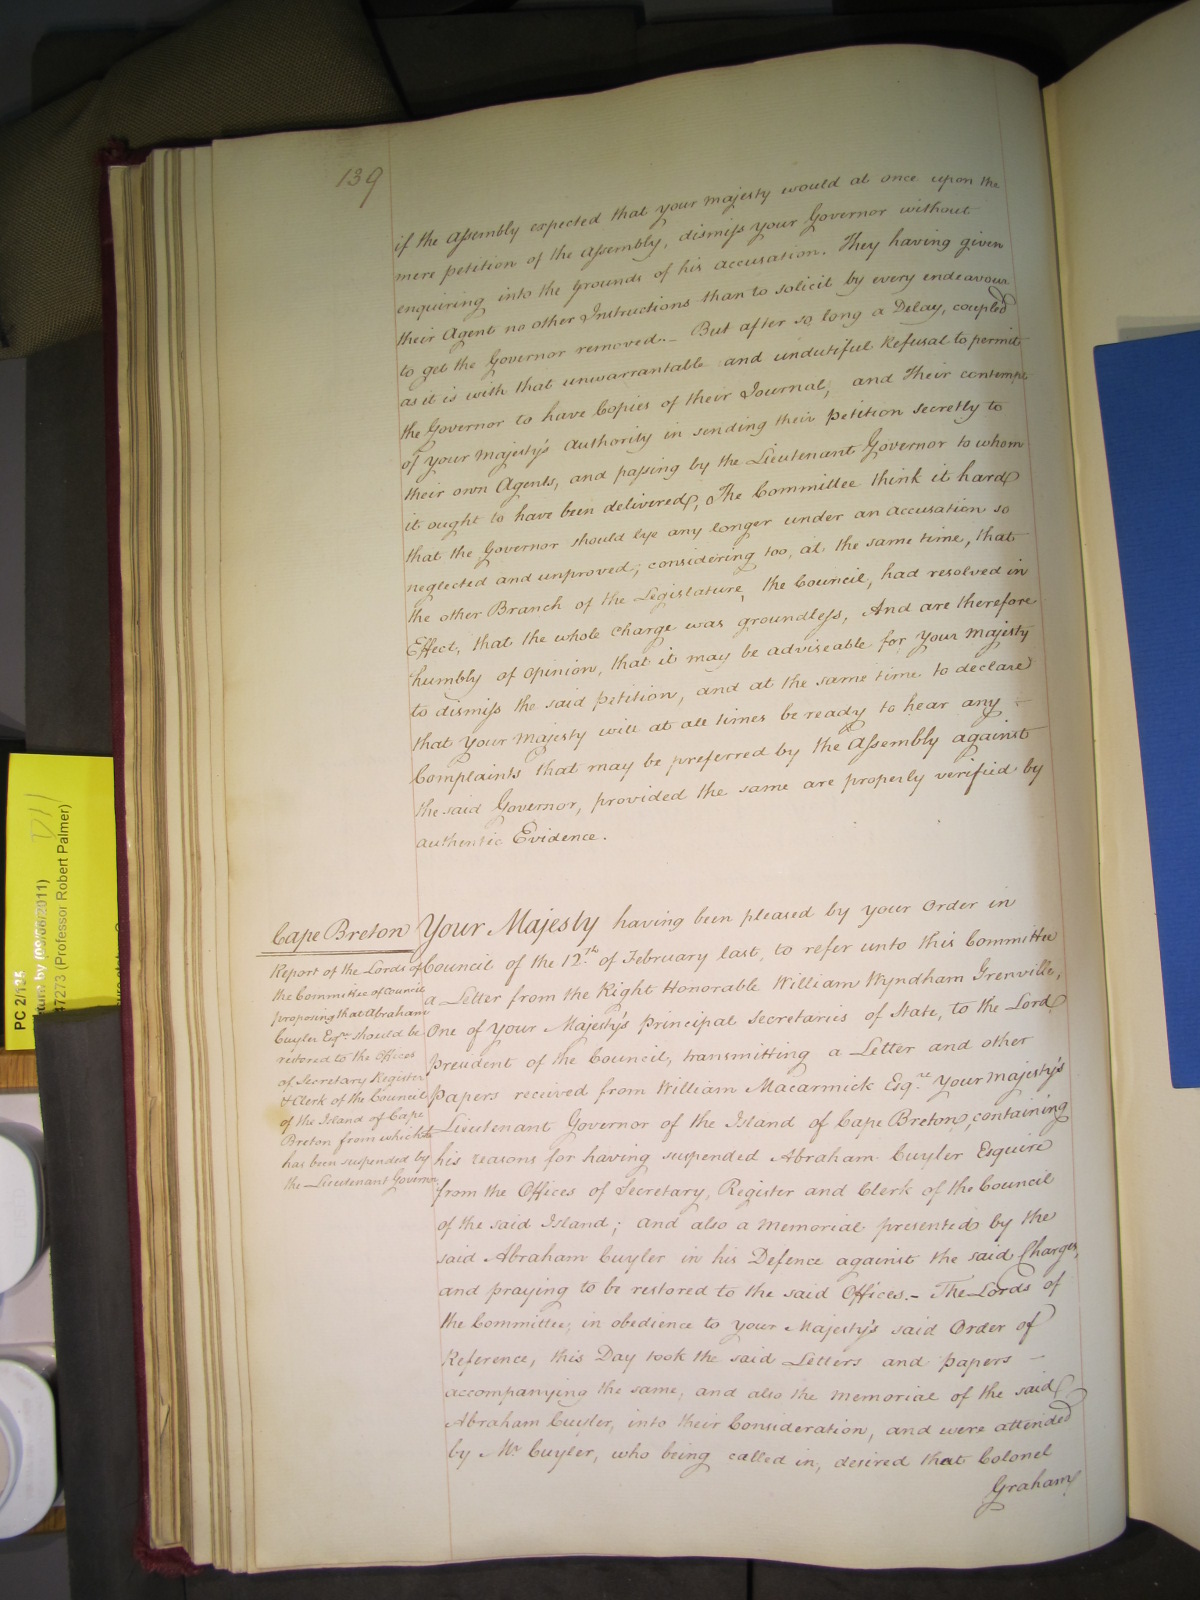 139
if the Assembly expected that your Majesty would at once upon the
mere petition of the Assembly, dismiss your Governor without
enquiring into the grounds of his accusation. They having given
their Agent no other Instructions than to solicit by every endeavour
to get the Governor removed. _ But after so long a Delay, coupled
as it is with that unwarrantable and undutiful Refusal to permit
the Governor to have Copies of their Journal, and their contempt
of your Majesty's Authority in sending their petition secretly to
their own Agents, and passing by the Lieutenant Governor to whom
it ought to have been delivered, The Committee think it hard
that the Governor should lye any longer under an accusation so
neglected and unproved; considering too, at the same time, that
the other Branch of the Legislature, the Council, had resolved in
Effect, that the whole charge was groundless, And are therefore
humbly of opinion, that it may be adviseable for Your Majesty
to dismiss the said petition, and at the same time to declare
that Your Majesty will at all times be ready to hear any -
Complaints that may be preferred by the Assembly against
the said Governor, provided the same are properly verified by
authentic Evidence.
Cape Breton
Report of the Lords of
the Committee of Council
proposing that Abraham
Cuyler Esqr. should be
restored to the Offices
of Secretary Register
& Clerk of the Council
of the Island of Cape
Breton from which he
has been suspended by
the Lieutenant Governor
Your Majesty having been pleased by your Order in
Council of the 12th. of February last, to refer unto this Committee
a Letter from the Right Honorable William Wyndham Grenville,
One of your Majesty's Principal Secretaries of State, to the Lord
President of the Council, transmitting a Letter and other
Papers received from William Macarmick Esqre. Your Majesty's
Lieutenant Governor of the Island of Cape Breton, containing
his reasons for having suspended Abraham Cuyler Esquire
from the Offices of Secretary, Register and Clerk of the Council
of the said Island; and also a Memorial presented by the
said Abraham Cuyler in his Defence against the said Charges,
and praying to be restored to the said Offices. - The Lords of
the Committee, in obedience to your Majesty's said Order of
Reference, this Day took the said Letters and papers -
accompanying the same, and also the Memorial of the said
Abraham Cuyler, into their Consideration, and were attended
by Mr. Cuyler, who being called in, desired that Colonel
Graham
PC 2/135
by (09/06/2011)
47273 (Professor Robert Palmer)
D11